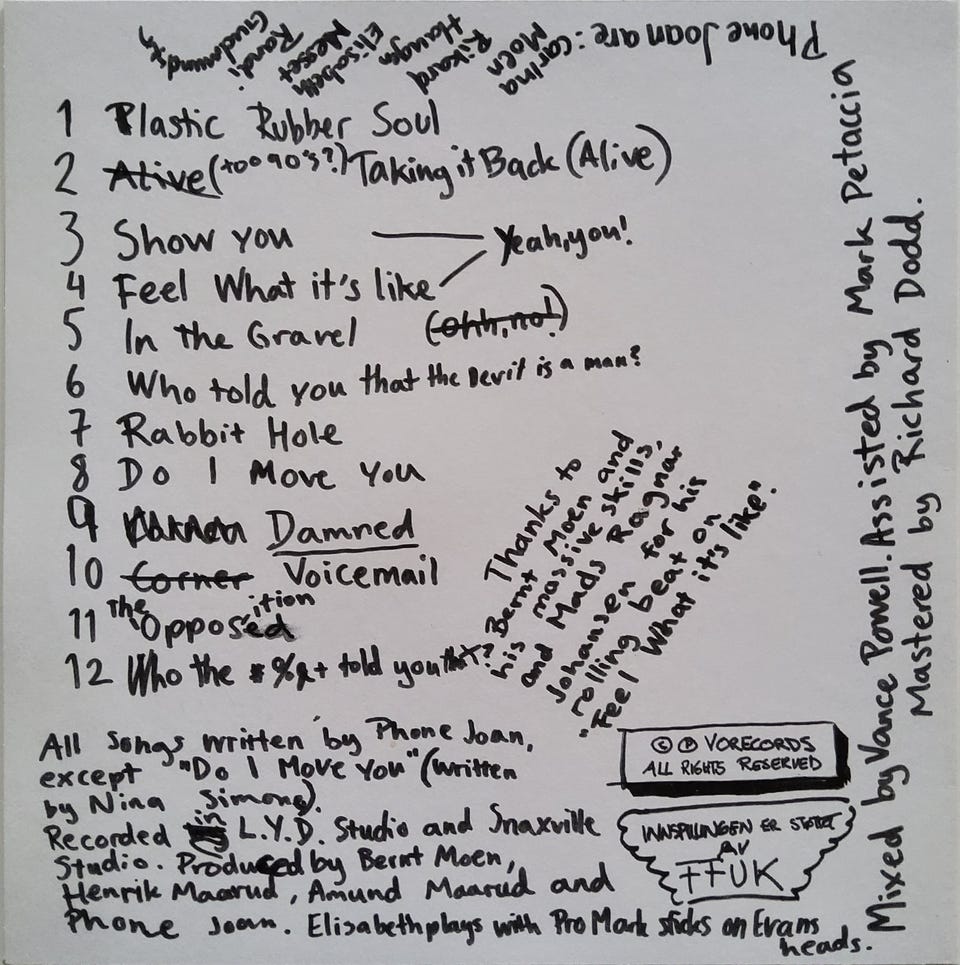 Phone Joan are: Carina
Moen
Rikard
Haugen
Elisabeth
Messet
Randi
1 Plastic Rubber Soul
2 Alive (too 90's?) Taking it Back (Alive)
3 Show you
Yeah, you!
4 Feel What it's like
5 In the Gravel (Ohh, no!)
6 Who told you that the Devil is a man?
7 Rabbit Hole
8 Do I Move You
9 Damned
10 Corner Voicemail
11 The Opposition
12 Who the *%&+ told you that?
Thanks to
Bernt Moen and
his massive skills,
and Mads Ragnar
Johansen for his
rolling beat on
"Feel What it's like".
All songs written by Phone Joan,
except "Do I Move You" (written
by Nina Simone).
Recorded in L.Y.D. Studio and Snaxville
Studio. Produced by Bernt Moen,
Henrik Maarud, Amund Maarud and
Phone Joan. Elisabeth plays with Pro Mark sticks on Evans
heads.
© ℗ VORECORDS
ALL RIGHTS RESERVED
INNSPILLINGEN ER STØTTET
AV
FFUK
Mixed by Vance Powell. Assisted by Mark Petaccia
Mastered by Richard Dodd.